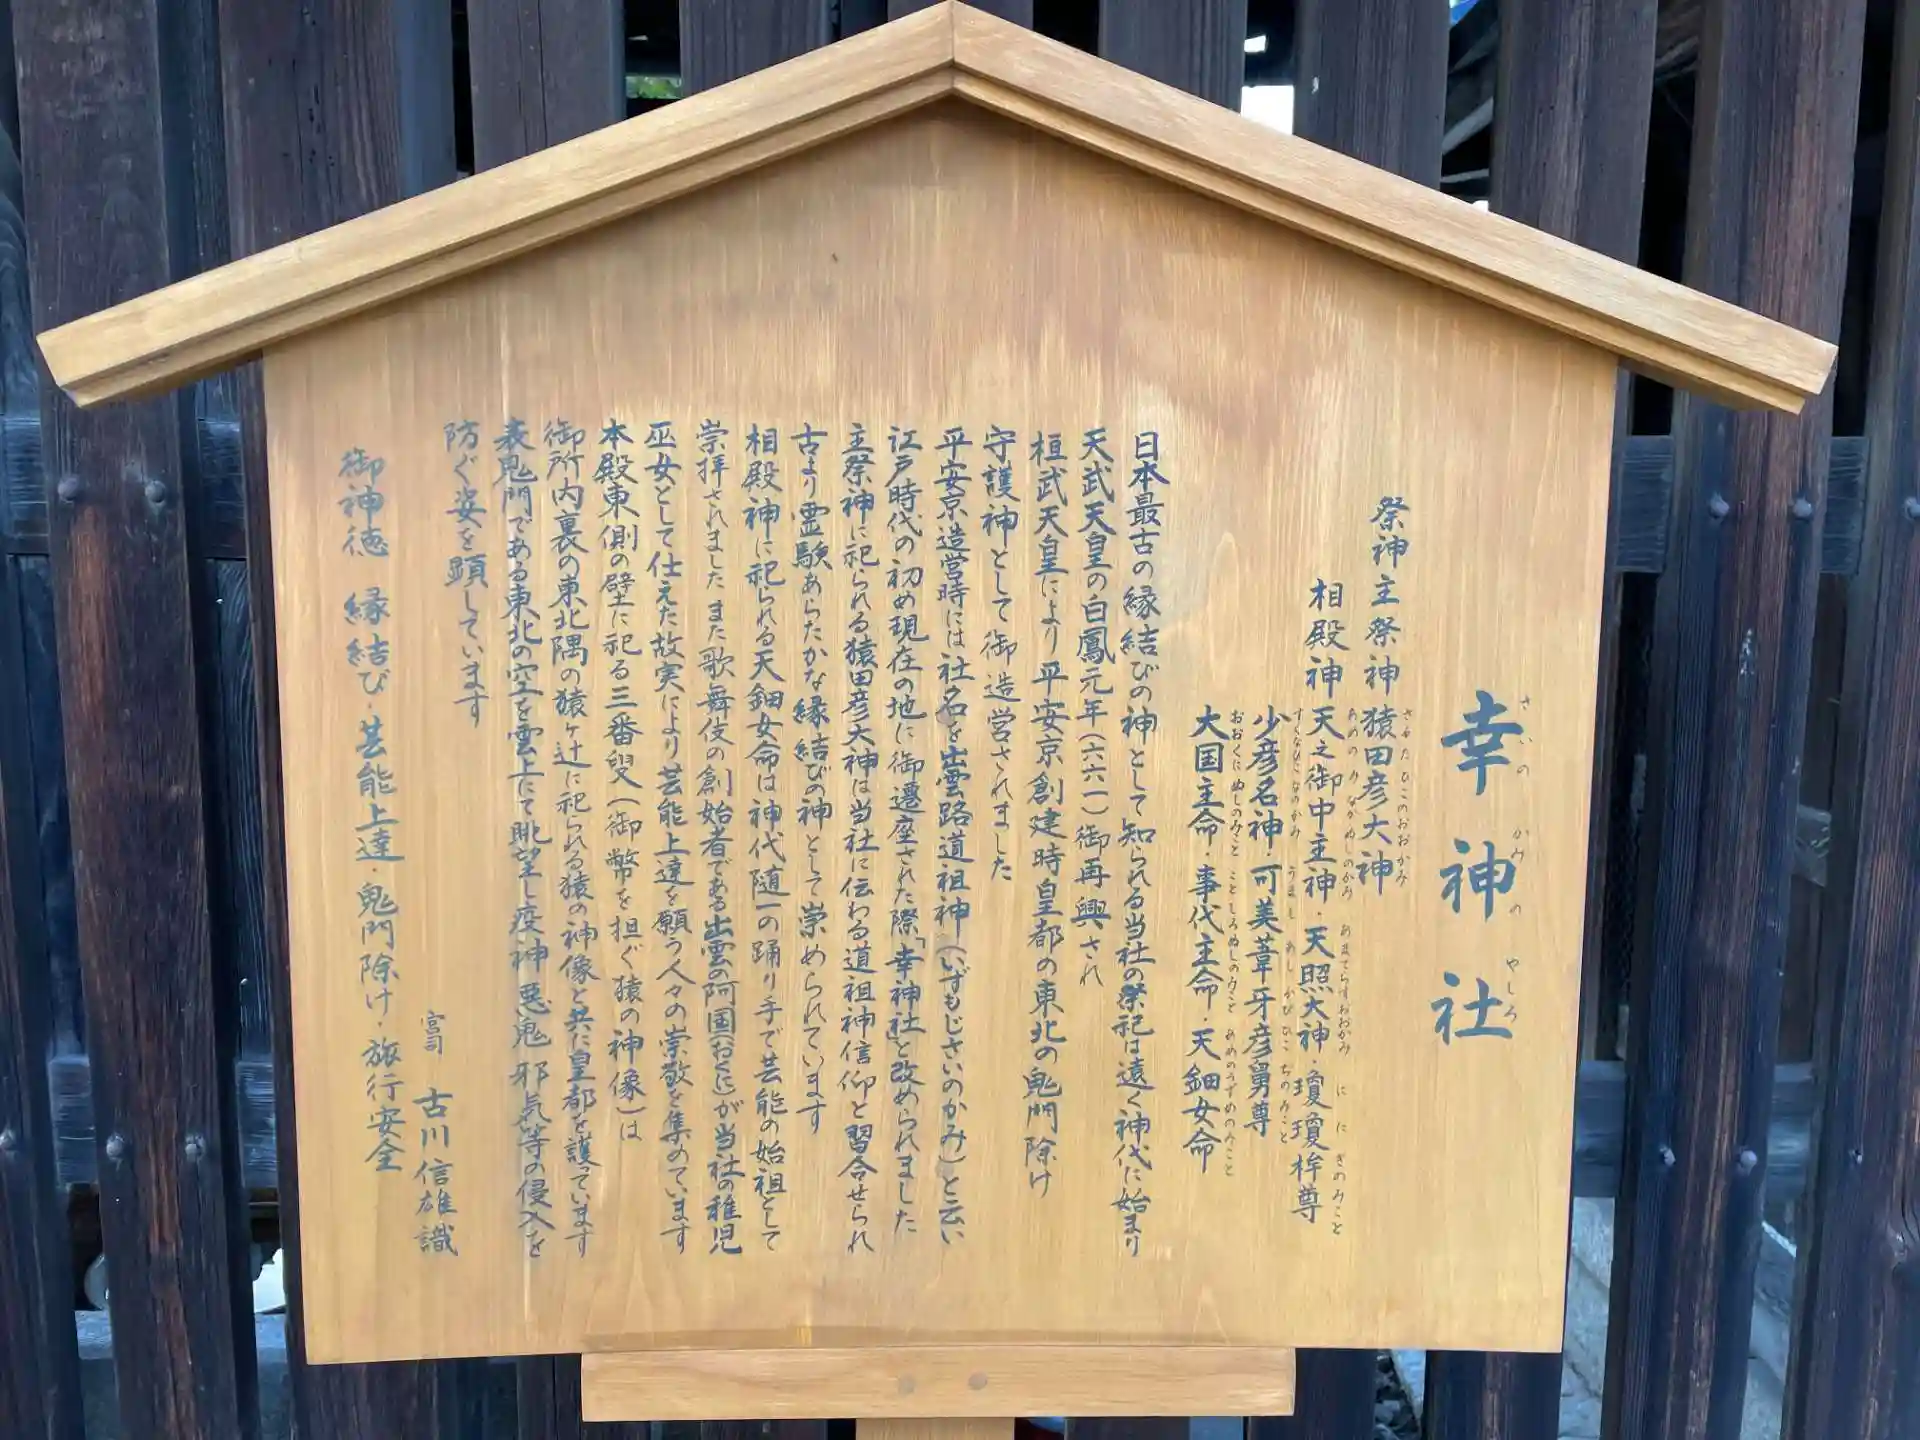 幸神社
さいのかみのやしろ
祭神主祭神 猿田彦大神
さるたひこのおおかみ
相殿神 天之御中主神・天照大神・瓊瓊杵尊
あめのみなかぬしのかみ あまてらすおおかみ ににぎのみこと
少彦名神・可美葦牙彦舅尊
すくなびこなのかみ うましあしがびひこぢのみこと
大国主命・事代主命・天鈿女命
おおくにぬしのみこと ことしろぬしのみこと あめのうずめのみこと
日本最古の縁結びの神として知られる当社の祭祀は遠く神代に始まり
天武天皇の白鳳元年(六六一)御再興され
桓武天皇により平安京創建時皇都の東北の鬼門除け
守護神として御造営されました
平安京造営時には社名を出雲路道祖神(いずもじさいのかみ)と云い
江戸時代の初め現在の地に御遷座された際「幸神社」と改められました
主祭神に祀られる猿田彦大神は当社に伝わる道祖神信仰と習合せられ
古より霊験あらたかな縁結びの神として崇められています
相殿神に祀られる天鈿女命は神代随一の踊り手で芸能の始祖として
崇拝されました また歌舞伎の創始者である出雲の阿国(おくに)が当社の稚児
巫女として仕えた故実により芸能上達を願う人々の崇敬を集めています
本殿東側の壁に祀る三番叟(御幣を担ぐ猿の神像)は
御所内裏の東北隅の猿ヶ辻に祀られる猿の神像と共に皇都を護っています
表鬼門である東北の空を雲上にて眺望し疫神 悪鬼 邪気等の侵入を
防ぐ姿を顕しています
宮司 古川信雄識
御神徳 縁結び・芸能上達・鬼門除け・旅行安全